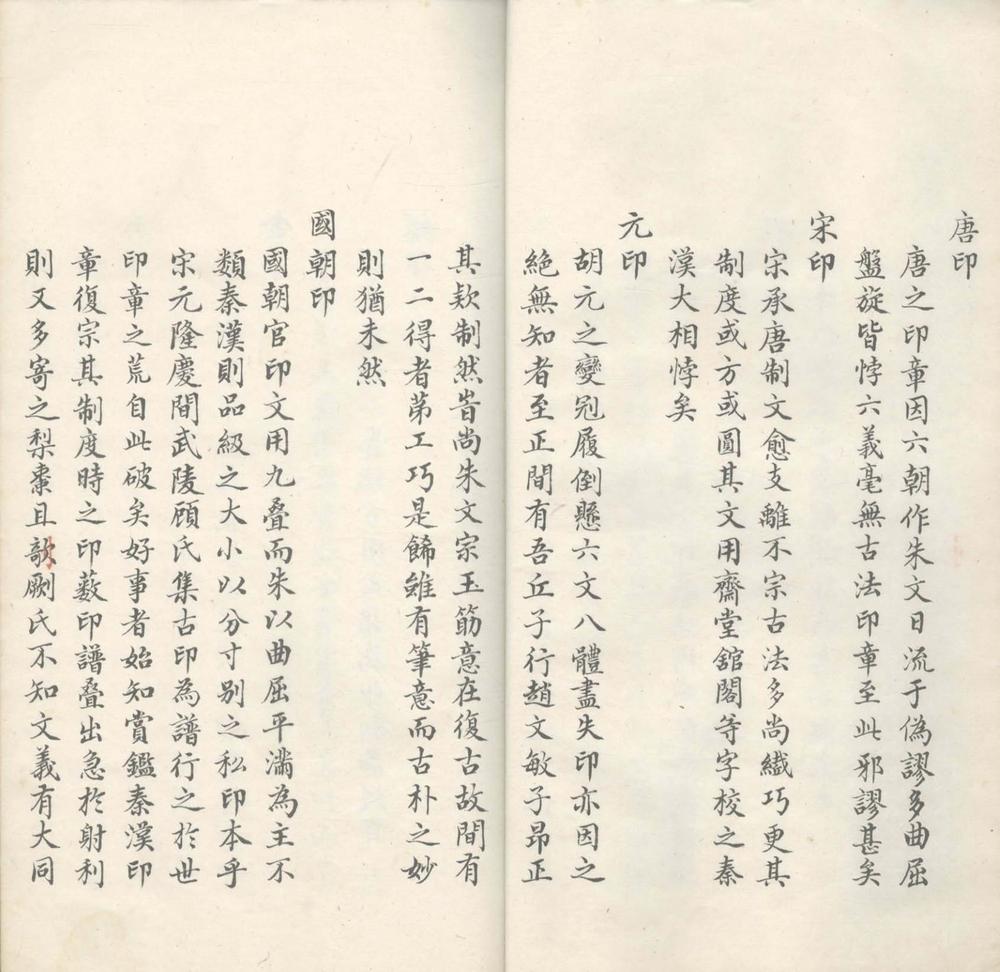 唐印
唐之印章因六朝作朱文日流于偽謬多曲屈
盤旋皆悖六義毫無古法印章至此邪謬甚矣
宋印
宋承唐制文愈支離不宗古法多尚纎巧更其
制度或方或圓其文用齋堂舘閣等字校之秦
漢大相悖矣
元印
胡元之變冠履倒懸六文八體盡失印亦因之
絶無知者至正間有吾丘子行趙文敏子昂正
其欵制然皆尚朱文宗玉筯意在復古故間有
一二得者第工巧是餙雖有筆意而古朴之妙
則猶未然
國朝印
國朝官印文用九叠而朱以曲屈平滿為主不
類秦漢則品級之大小以分寸別之私印本乎
宋元隆慶間武陵顧氏集古印為譜行之於世
印章之荒自此破矣好事者始知賞鑑秦漢印
章復宗其制度時之印藪印譜叠出急於射利
則又多寄之梨棗且剞劂氏不知文義有大同